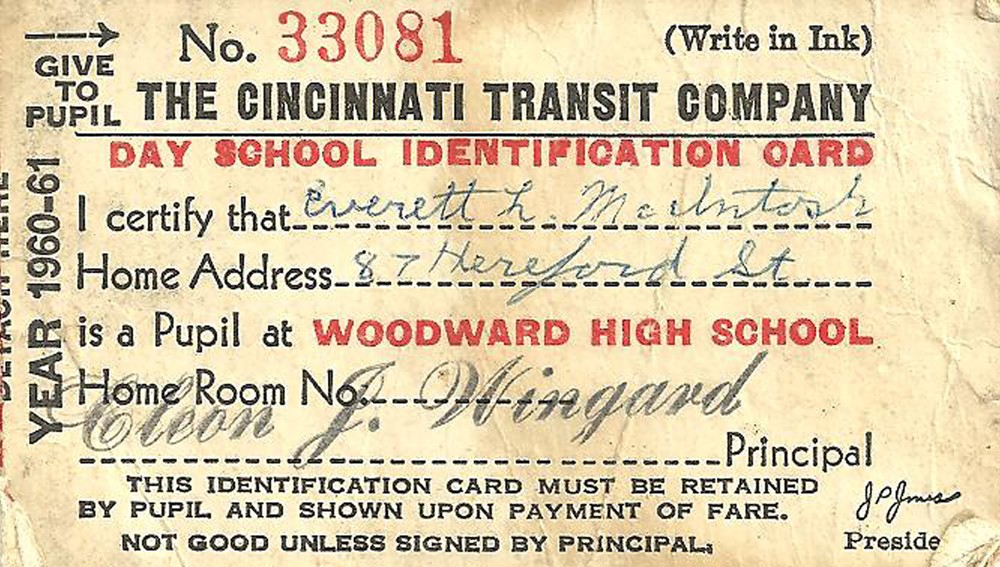 No. 33081 (Write in Ink)
GIVE
TO
PUPIL
THE CINCINNATI TRANSIT COMPANY
DAY SCHOOL IDENTIFICATION CARD
YEAR 1960-61
DETACH HERE
I certify that Everett L. McIntosh
Home Address 87 Hereford St.
is a Pupil at WOODWARD HIGH SCHOOL
Home Room No.
Cleon J. Wingard
Principal
THIS IDENTIFICATION CARD MUST BE RETAINED
BY PUPIL AND SHOWN UPON PAYMENT OF FARE.
NOT GOOD UNLESS SIGNED BY PRINCIPAL.
J P Jones
Preside